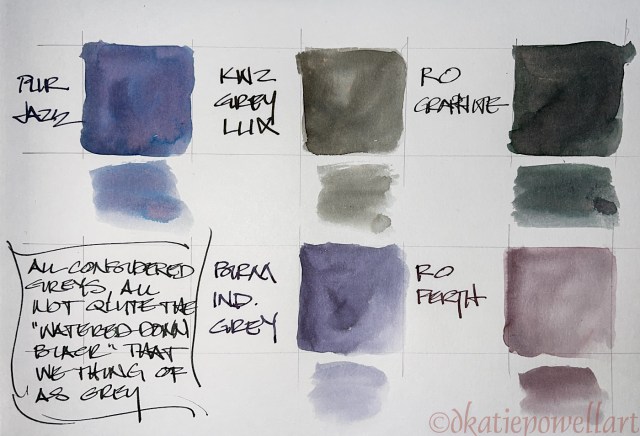 PUR
JAZZ
KWZ
GREY
LUX
RO
GRAPHITE
ALL CONSIDERED
GREYS, ALL
NOT QUITE THE
"WATERED-DOWN
BLACK" THAT
WE THING OF
AS GREY
IND.
GREY
RO
PERTH
©dkatiepowellart